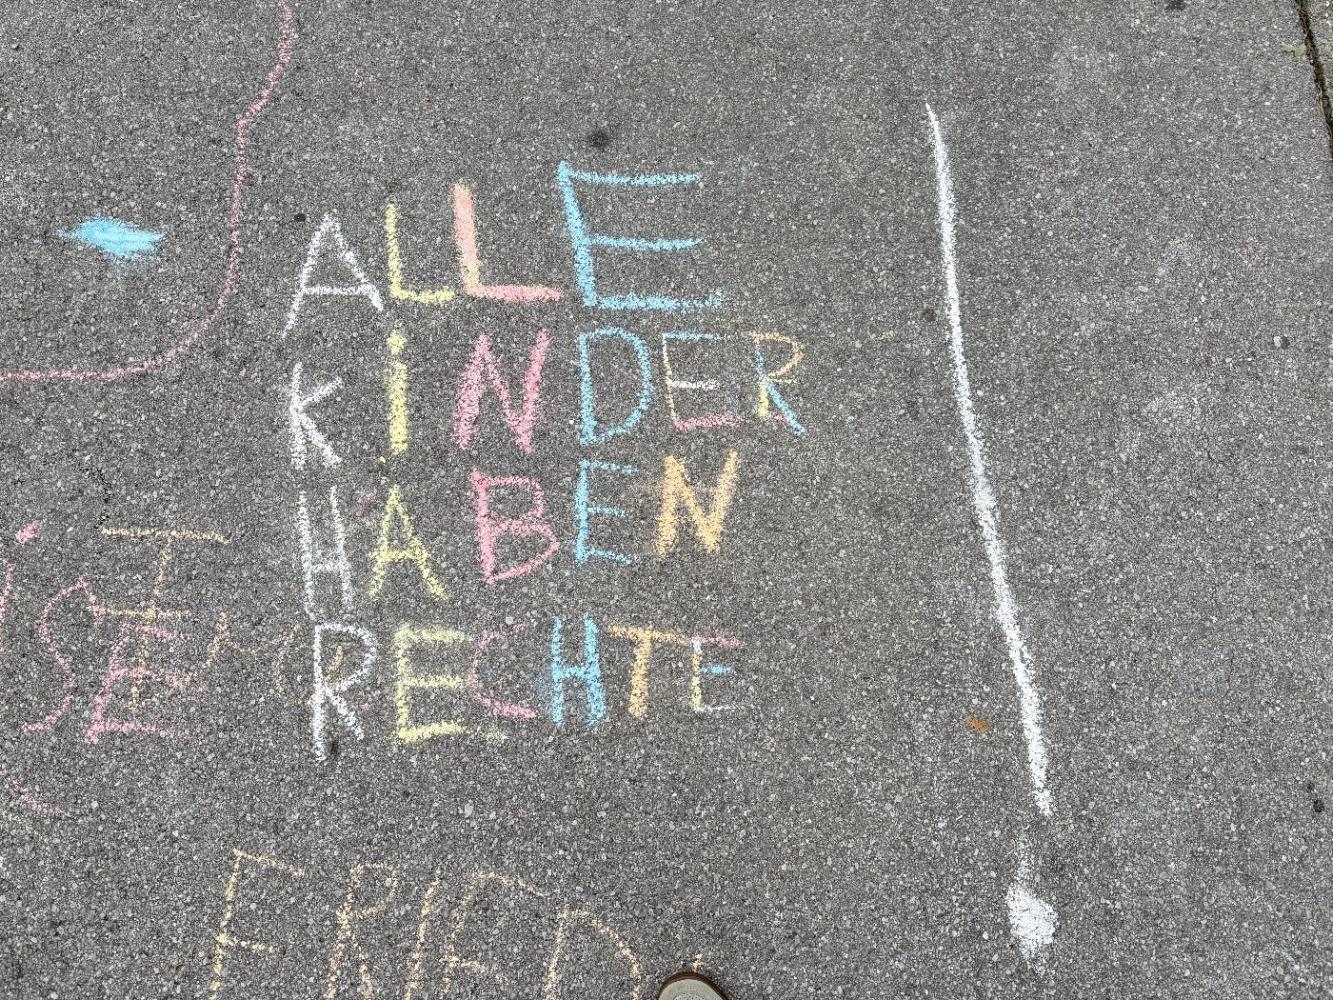 ALLE
KINDER
HABEN
RECHTE